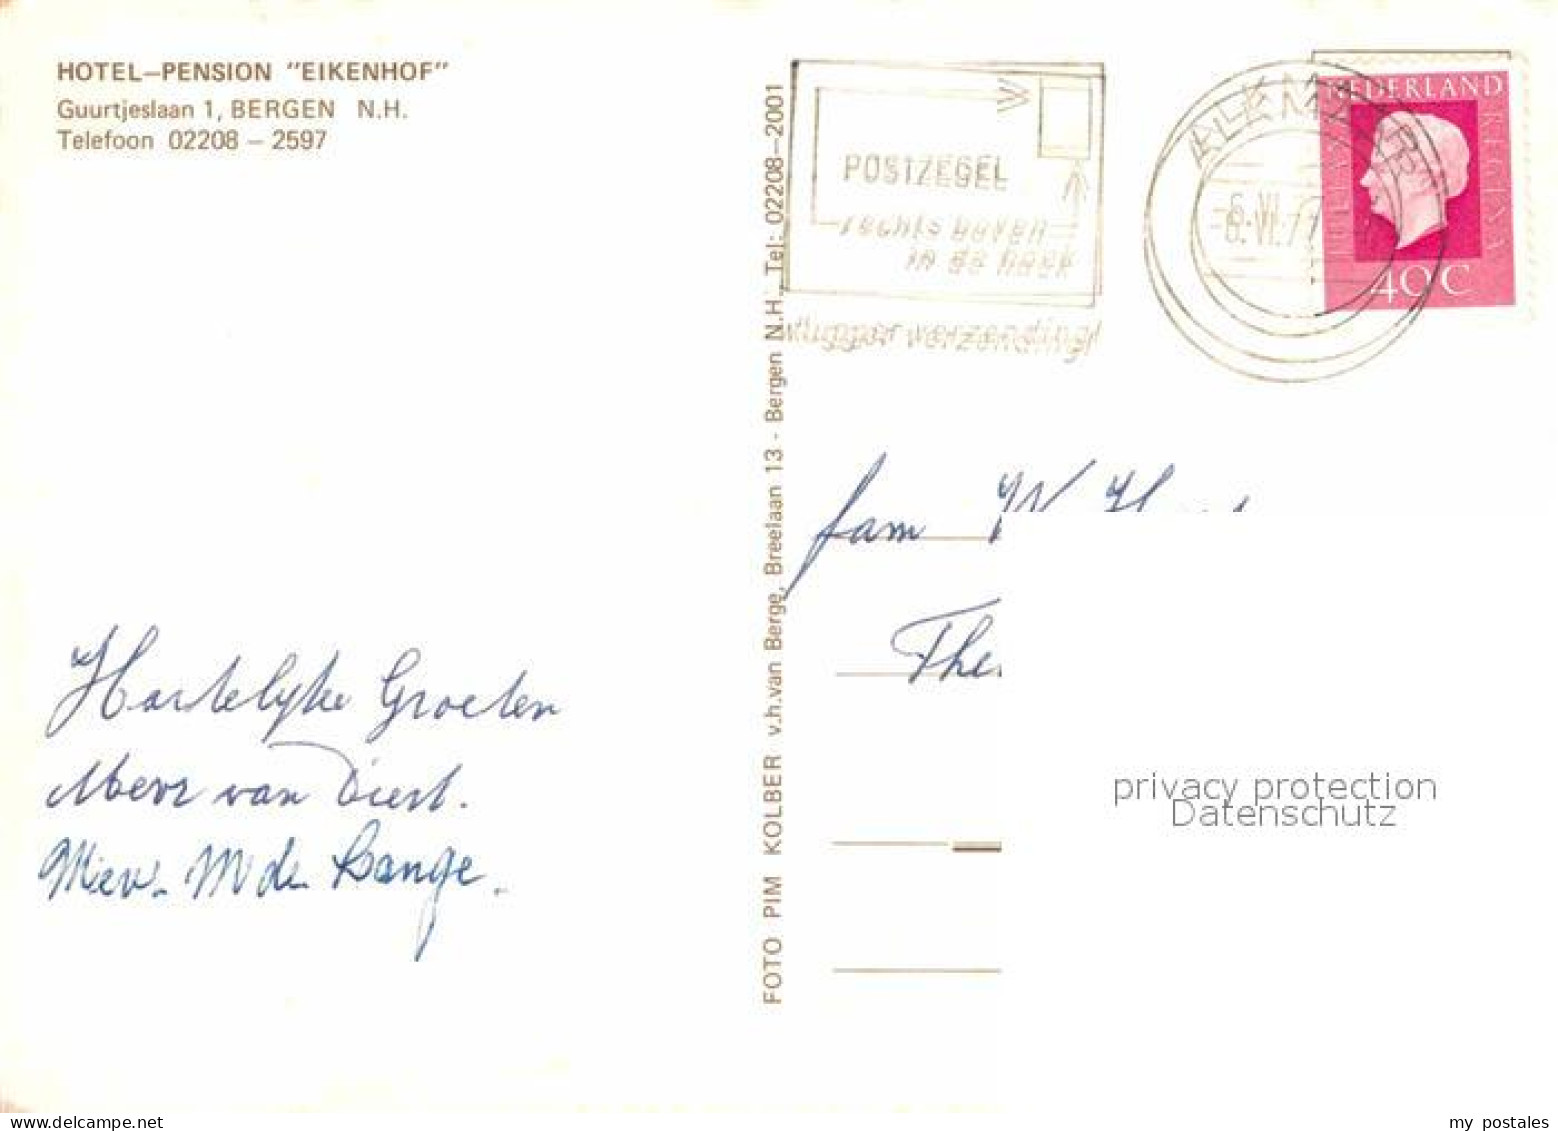 HOTEL–PENSION "EIKENHOF"
Guurtjeslaan 1, BERGEN N.H.
Telefoon 02208 – 2597
Hartelijke Groeten
Mevr van Diest.
Mev. M de Lange.
FOTO PIM KOLBER v.h. van Berge, Breelaan 13 - Bergen N.H. Tel: 02208–2001
POSTZEGEL
rechts boven
in de hoek
vlugger verzending!
ALKMAAR
6.VI.77
NEDERLAND
JULIANA
REGINA
40C
fam W
The
privacy protection
Datenschutz
my postales